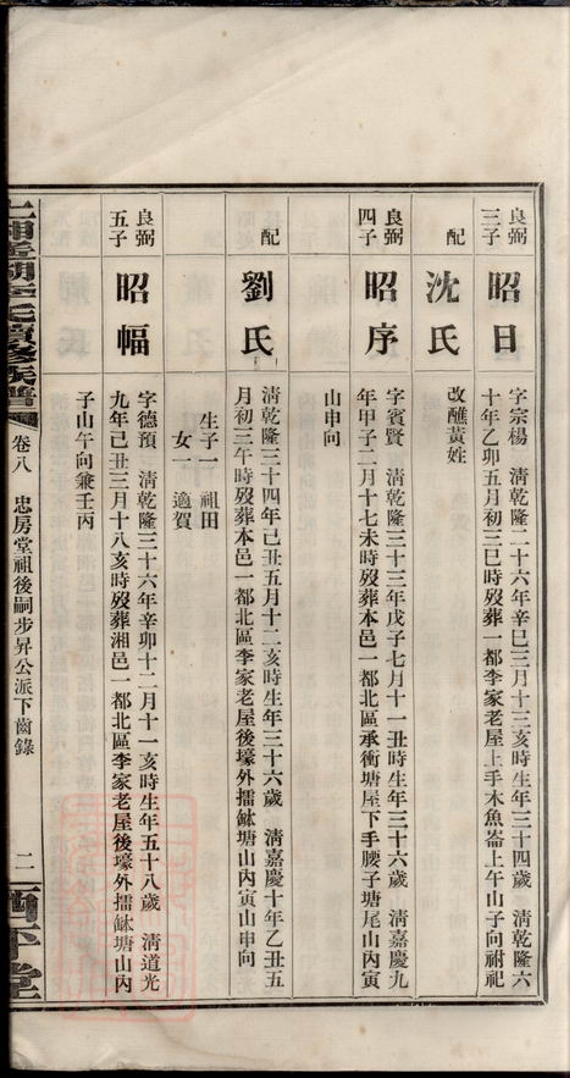 良弼
三子
昭日
字宗楊 清乾隆二十六年辛巳三月十三亥時生年三十四歲 清乾隆六
十年乙卯五月初三巳時歿葬一都李家老屋上手木魚崙上午山子向祔祀
配
沈氏
改醮黃姓
良弼
四子
昭序
字賓賢 清乾隆三十三年戊子七月十一丑時生年三十六歲 清嘉慶九
年甲子二月十七未時歿葬本邑一都北區承衝塘屋下手腰子塘尾山內寅
山申向
配
劉氏
清乾隆三十四年己丑五月十二亥時生年三十六歲 清嘉慶十年乙丑五
月初三午時歿葬本邑一都北區李家老屋後壕外擂缽塘山內寅山申向
生子一 祖田
女一 適賀
良弼
五子
昭幅
字德預 清乾隆三十六年辛卯十二月十一亥時生年五十八歲 清道光
九年己丑三月十八亥時歿葬湘邑一都北區李家老屋後壕外擂缽塘山內
子山午向兼壬丙
氏續修族譜
卷八 忠房堂祖後嗣步昇公派下齒錄
二